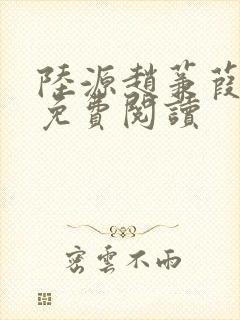 陸源趙蒹葭
免費閱讀
密雲不雨